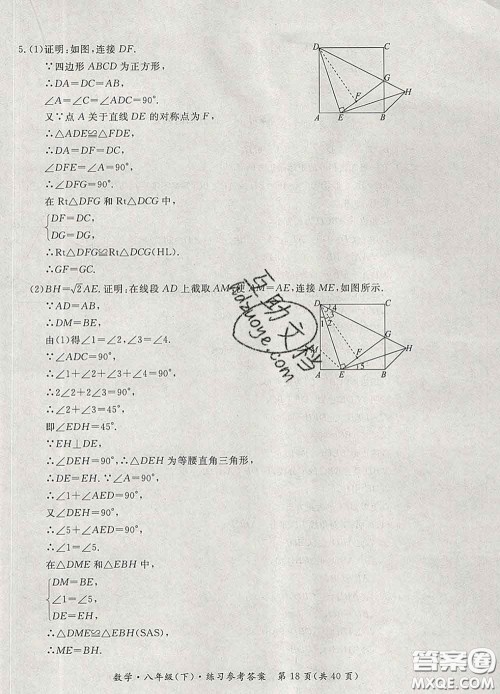 5.(1)证明:如图,连接 DF.
∵四边形 ABCD 为正方形,
∴DA=DC=AB,
∠A=∠C=∠ADC=90°.
又∵点 A 关于直线 DE 的对称点为 F,
∴△ADE≌△FDE,
∴DA=DF=DC,
∠DFE=∠A=90°,
∴∠DFG=90°.
在 Rt△DFG 和 Rt△DCG 中,
{DF=DC,
DG=DG,
∴Rt△DFG≌Rt△DCG(HL).
∴GF=GC.
D C G H F A E B
(2)BH=√2AE.证明:在线段 AD 上截取 AM,使 AM=AE,连接 ME,如图所示.
∵AD=AB,
∴DM=BE,
由(1)得∠1=∠2,∠3=∠4.
∵∠ADC=90°,
∴∠1+∠2+∠3+∠4=90°,
∴2∠2+2∠3=90°,
∴∠2+∠3=45°.
即∠EDH=45°.
∵EH⊥DE,
∴∠DEH=90°,∴△DEH为等腰直角三角形,
∴DE=EH,
∴∠1+∠AED=90°,
又∠DEH=90°,
∴∠5+∠AED=90°,
∴∠1=∠5.
在△DME 和△EBH 中,
{DM=BE,
∠1=∠5,
DE=EH,
∴△DME≌△EBH(SAS),
∴ME=BH.
D C 3 4 1 2 G H M F A E 5 B
数学·八年级(下)·练习参考答案 第18页(共40页)
互助文档
hdzuoye.com
作业帮
MXEQ.COM